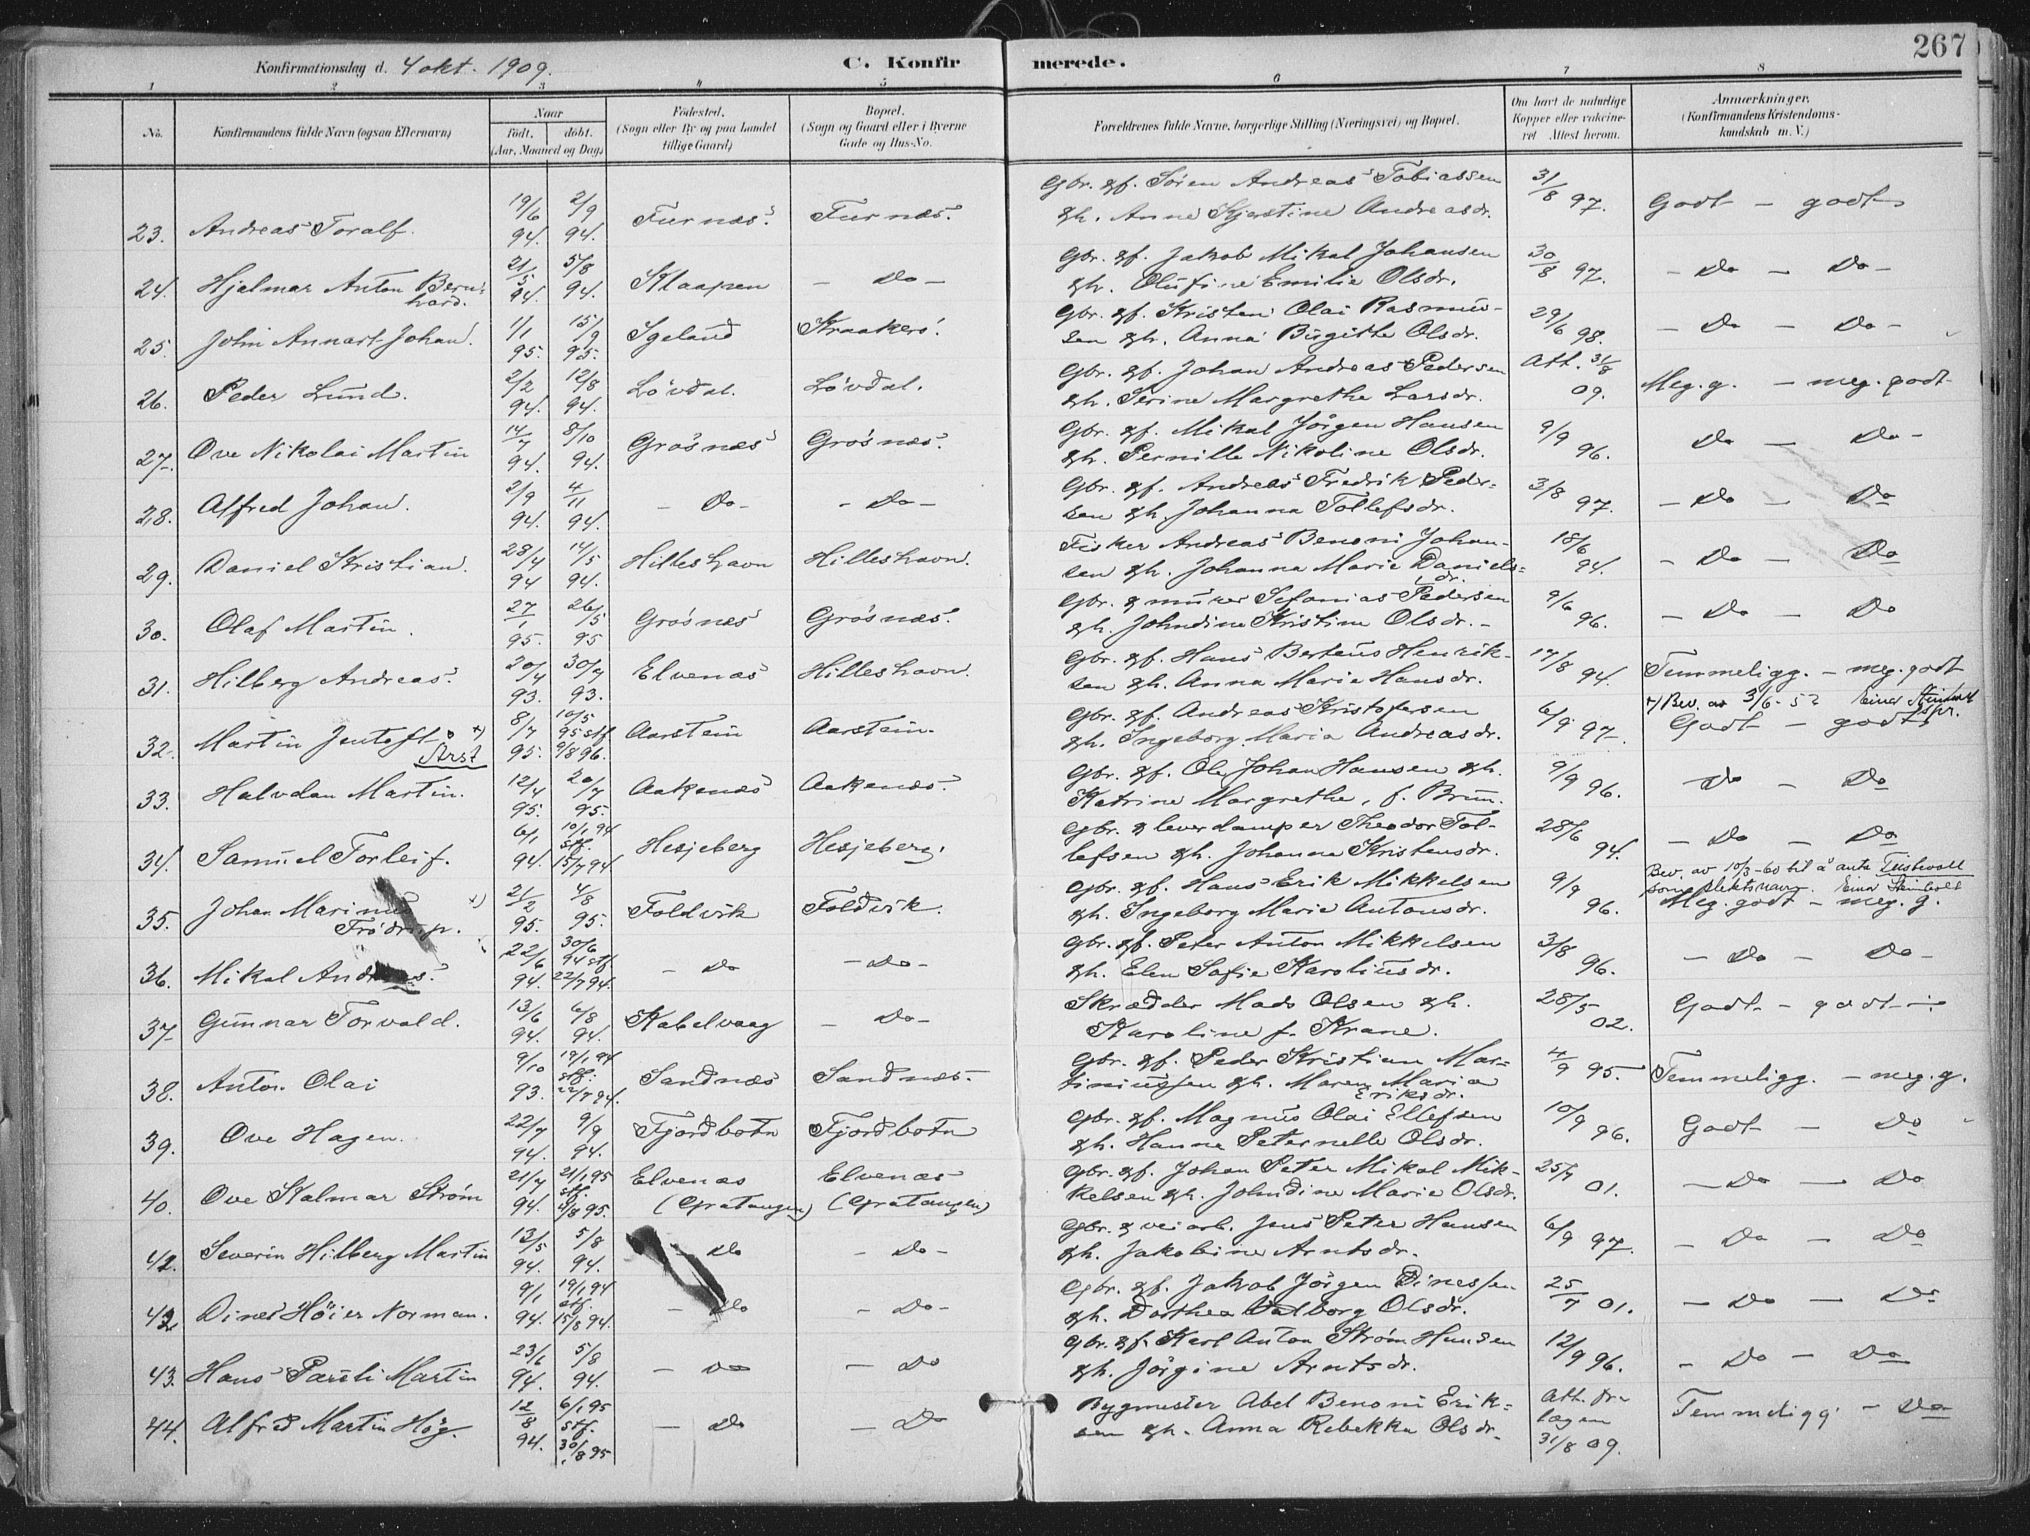 267
Konfirmationsdag d. 4 okt. 1909.
C. Konfirmerede.
1 2 3 4 5 6 7 8
No.
Konfirmandens fulde Navn (ogsaa Efternavn)
Naar
født. døbt.
(Aar, Maaned og Dag)
Fødested.
(Sogn eller By og paa Landet
tillige Gaard)
Bopæl.
(Sogn og Gaard eller i Byerne
Gade og Hus-No.
Forældrenes fulde Navne, borgerlige Stilling (Næringsvei) og Bopæl.
Om havt de naturlige
Kopper eller vakcine-
ret Attest herom.
Anmærkninger.
(Konfirmandens Kristendoms-
kundskab m. V.)
23. Andreas Toralf. 19/6 94. 2/9 94. Furnæs. Furnæs. Gbr. & f. Sören Andreas Tobiassen
& h. Anne Kjerstine Andreasdr. 31/8 97. Godt – godt
24. Hjalmar Anton Bern-
hard. 21/5 94. 5/8 94. Klaapen – Do – Gbr. & f. Jakob Mikal Johansen
& h. Olufine Emilie Olsdr. 30/8 97. – Do – Do –
25. John Annart Johan. 1/1 95. 15/9 95. Sgeland Kraakerö. Gbr. & f. Kristen Olai Rasmus-
sen & h. Anna Birgitte Olsdr. 29/6 98. – Do – Do –
26. Peder Lund. 2/2 94. 12/8 94. Lövdal. Lövdal. Gbr. & f. Johan Andreas Pedersen
& h. Serine Margrethe Larsdr. Att. 31/8 09. Meg. g. – meg. godt
27. Ove Nikolai Martin 14/7 94. 8/10 94. Grosnæs Grosnæs. Gbr. & f. Mikal Jörgen Hansen
& h. Pernille Nikoline Olsdr. 9/9 96. Do – Do –
28. Alfred Johan. 2/9 94. 4/11 94. – Do – – Do – Gbr. & f. Andreas Fredrik Peder-
sen & h. Johanna Tollefsdr. 3/8 97. – Do – Do
29. Daniel Kristian. 28/4 94 14/5 94. Hilleshavn Hilleshavn. Fisker Andreas Benoni Johan-
sen & h. Johanna Marie Daniels-
dr. 18/6 94. – Do – Do
30. Olaf Martin. 27/1 95. 26/5 95 Grosnæs Grosnæs. Gbr. & murer Sefanias Pedersen
& h. Johndine Kristine Olsdr. – 9/6 96. – Do – Do
31. Hilberg Andreas. 20/4 93. 30/7 93. Elvenæs Hilleshavn. Gbr. & f. Hans Berteus Henrik-
sen & h. Anna Marie Hansdr. 17/8 94. Temmeligg. – meg. godt
32. Martin Jentoft x)
Arst 8/7 95. 10/5 95 stf. 9/8 96. Aarstein Aarstein. Gbr. & f. Andreas Kristofersen
& h. Ingeborg Maria Andreasdr. 6/9 97. x) Bev. av 3/6-52
Godt – godt
33. Halvdan Martin. 12/4 95. 20/7 95. Aakenæs Aakenæs. Gbr. & f. Ole Johan Hansen & h.
Katrine Margrethe, f. Brun. 9/9 96. Do – Do
34. Samuel Torleif. 6/1 94. 10/1 94 stf. 15/7 94 Hesjeberg Hesjeberg. Gbr. & leverdamper Theodor Tol-
lefsen & h. Johanna Kristensdr. 28/6 94. – Do – Do
35. Johan Marinus x)
Frödrup. 21/2 95. 4/8 95. Foldvik Foldvik. Gbr. & f. Hans Erik Mikkelsen
& h. Ingeborg Marie Antonsdr. 9/9 96. Bev. av 10/3-60 til å anta Teistevoll
som slektsnavn. Einar Steinholt
Meg. godt – meg. g.
36. Mikal Andreas. 22/6 94. 30/6 94 stf. 22/7 94. – Do – Do – Gbr. & f. Peter Anton Mikkelsen
& h. Elen Sofie Karoliusdr. 3/8 96. – Do – Do –
37. Gunnar Torvald. 13/6 94. 6/8 94. Kabelvaag – Do – Skrædder Mads Olsen & h.
Karoline f. Krane. 28/5 02. Godt – godt –
38. Anton Olai 9/10 93. 19/1 94 stf. 22/7 94. Sandnæs Sandnæs. Gbr. & f. Peder Kristian Mar-
tinussen & h. Maren Maria
Eriksdr. 4/9 95. Temmeligg. – meg. g.
39. Ove Hagen. 22/7 94. 9/9 94. Fjordbotn Fjordbotn Gbr. & f. Magnus Olai Ellefsen
& h. Hanna Peternelle Olsdr. 10/9 96. Godt – Do
40. Ove Kalmar Ström 21/7 94. 21/1 95 stf. 95. Elvenæs
(Gratangen) Elvenæs
(Gratangen) Gbr. & f. Johan Peter Mikal Mik-
kelsen & h. Johndine Marie Olsdr. 25/7 01. – Do – Do
42. Severin Hilberg Martin 13/5 94. 5/8 94. Do – Do – Gbr. & veiarb. Jens Peter Hansen
& h. Jakobine Arntsdr. 6/9 97. – Do – Do
42 Dines Höier Norman. 9/1 94. 19/1 94 stf. 15/8 94. – Do – Do – Gbr. & f. Jakob Jörgen Dinessen
& h. Dorthea Valborg Olsdr. 25/7 01. – Do – Do
43. Hans Pareli Martin 23/6 94. 5/8 94. – Do – Do Gbr. & f. Karl Anton Ström Hansen
& h. Jörgine Arntsdr. 12/9 96. – Do – Do
44. Alfred Martin Hög. 12/8 94. 6/1 95 stf. 30/8 95 – Do – Do Bygmester Abel Benoni Erik-
sen & h. Anna Rebekka Olsdr. Att. fra
lægen
31/8 09. Temmeligg. – Do